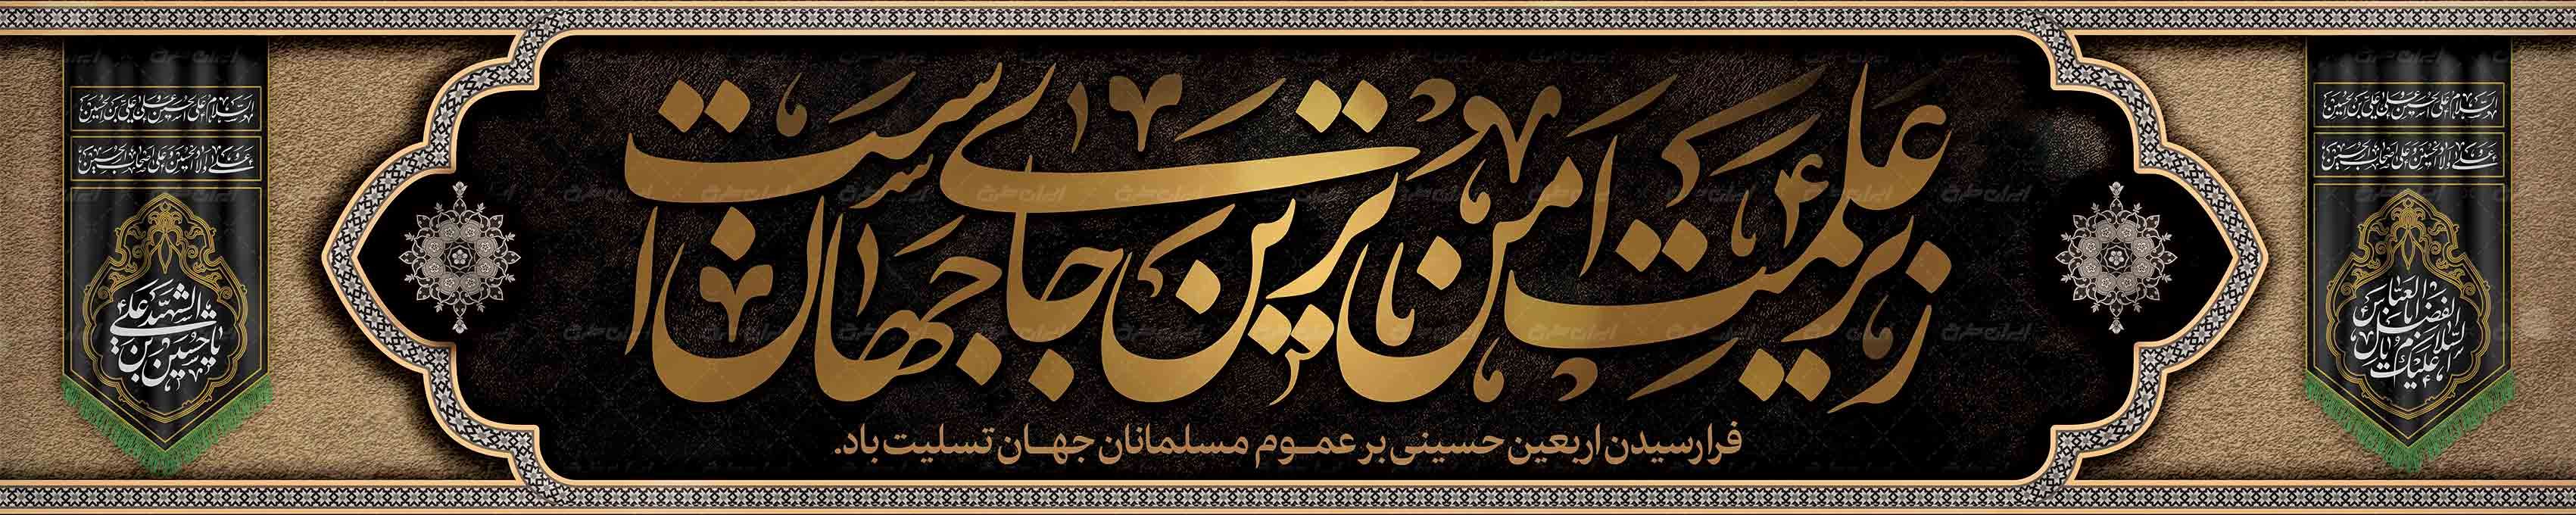 السلام علی الحسین و علی علی بن الحسین
و علی اولاد الحسین و علی اصحاب الحسین
السلام علیک یا اباالفضل العباس
زیر علمت امن ترین جای جهان است
فرارسیدن اربعین حسینی بر عموم مسلمانان جهان تسلیت باد.
السلام علی الحسین و علی علی بن الحسین
و علی اولاد الحسین و علی اصحاب الحسین
یا حسین بن علی الشهید
ایران طرح